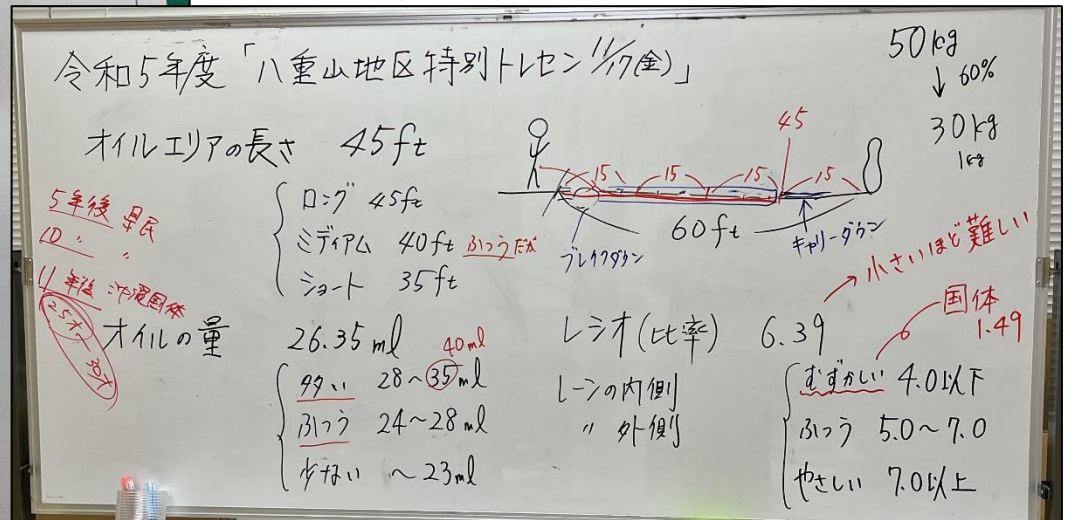 令和5年度「八重山地区特別トレセン 11/17(金)」
50kg
↓ 60%
30kg
1kg
オイルエリアの長さ 45ft
ロング 45ft
ミディアム 40ft ふつうだが
ショート 35ft
45
15 15 15 15
60ft
ブレイクダウン
キャリーダウン
5年後 県民
10 〃 〃
11年後 沖縄国体
25才
30才
オイルの量 26.35ml
40ml
多い 28~35ml
ふつう 24~28ml
少ない ~23ml
レシオ(比率) 6.39
小さいほど難しい
国体
1.49
レーンの内側
〃 外側
むずかしい 4.0以下
ふつう 5.0~7.0
やさしい 7.0以上